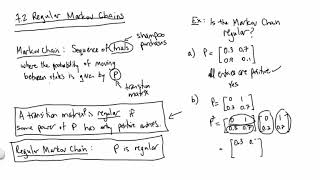 7.2 Regular Markov Chains
Markov Chain: Sequence of trials
shampoo
purchases
where the probability of moving
between states is given by P
transition
matrix
A transition matrix is regular if
some power of P has only positive entries.
Regular Markov Chain: P is regular
Ex: Is the Markov Chain
regular?
a) P = [0.3 0.7
0.9 0.1]
all entries are positive
yes
b) P = [0 1
0.3 0.7]
P² = [0 1 [0 1
0.3 0.7] 0.3 0.7]
= [0.3 0.